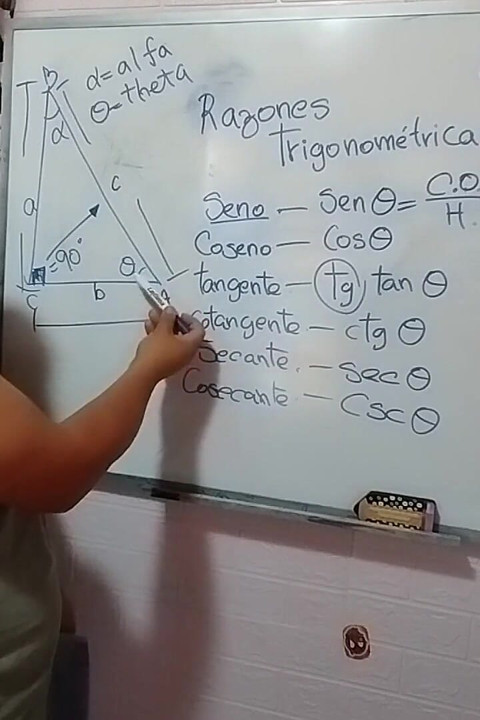 α=alfa
θ=theta
Razones
Trigonométrica
Seno — Sen θ = C.O / H.
Coseno — Cos θ
tangente — tg, tan θ
cotangente — ctg θ
Secante. — sec θ
Cosecante — Csc θ
B
α
a
c
=90°
θ
C
b
A